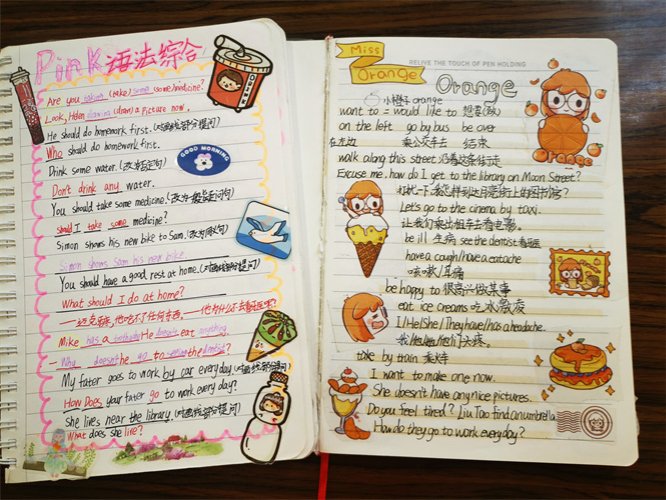 Pink 语法综合
Are you taking (take) some (some) medicine?
Look, Helen drawing (draw) a picture now.
He should do homework first. (对画线部分提问)
Who should do homework first.
Drink some water. (改为否定句)
Don't drink any water.
You should take some medicine! (改为一般疑问句)
Should I take some medicine?
Simon shows his new bike to Sam. (改为同义句)
Simon shows Sam his new bike
You should have a good rest at home. (对画线部分提问)
What should I do at home?
Mike has a toothache He doesn't eat anything.
- Why doesn't he go to see the dentist?
My fater goes to work by car everyday. (对画线部分提问)
How Does your fater go to work every day?
She lives near the library. (对画线部分提问)
What does she live?
GOOD MORNING
Miss
Orange
RELIVE THE TOUCH OF PEN HOLDING
Orange
小橙子 orange
want to = would like to 想要(做)
on the left go by bus be over
在左边 乘公交车去 结束
walk along this street 沿着这条街走
Excuse me. how do I get to the library on Moon Street?
打扰一下我怎样到达月亮街上的图书馆?
Let's go to the cinema by taxi.
让我们乘出租车去看电影。
be ill 生病 see the dentist 看牙医
have a cough/have a earache
咳嗽/耳痛
be happy to 很高兴做某事
eat ice creams 吃冰激凌
I/He/She/They have/has a headache.
我/他/她/他们头疼。
take by train 乘火车
I want to make one now.
She doesn't have any nice pictures.
Do you feel tired? Liu Tao find an umbrella
How do they go to work everyday?
Orange